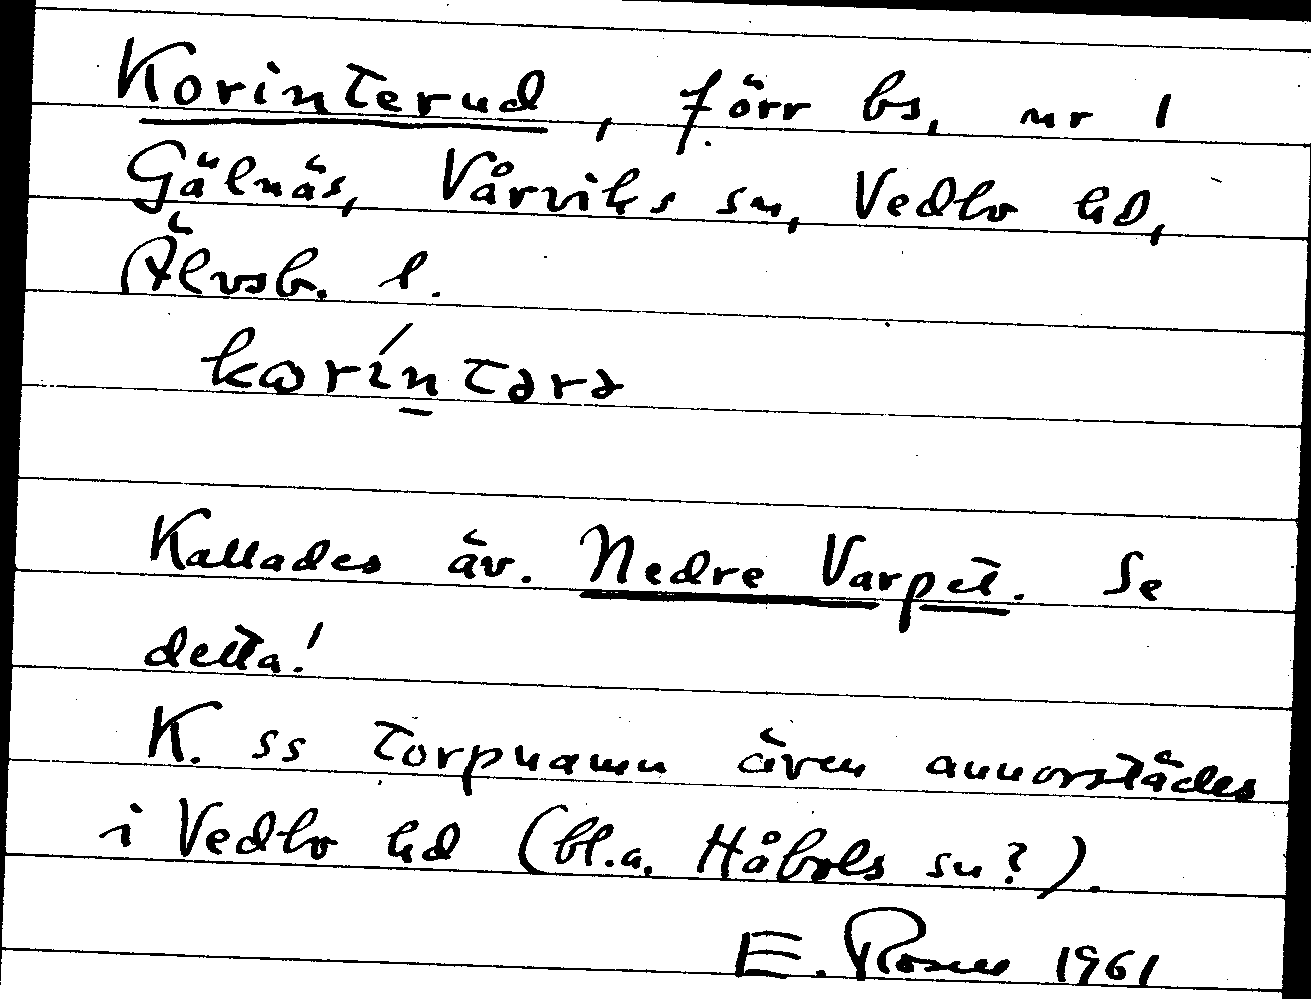 Korinterud, förr bs, nr 1
Gälnäs, Vårviks sn, Vedbo hd,
Älvsb. l.
koríntərə
Kallades äv. Nedre Varpet. Se
detta!
K. ss torpnamn även annorstädes
i Vedbo hd (bl.a. Håbols sn?).
E. Rosell 1961